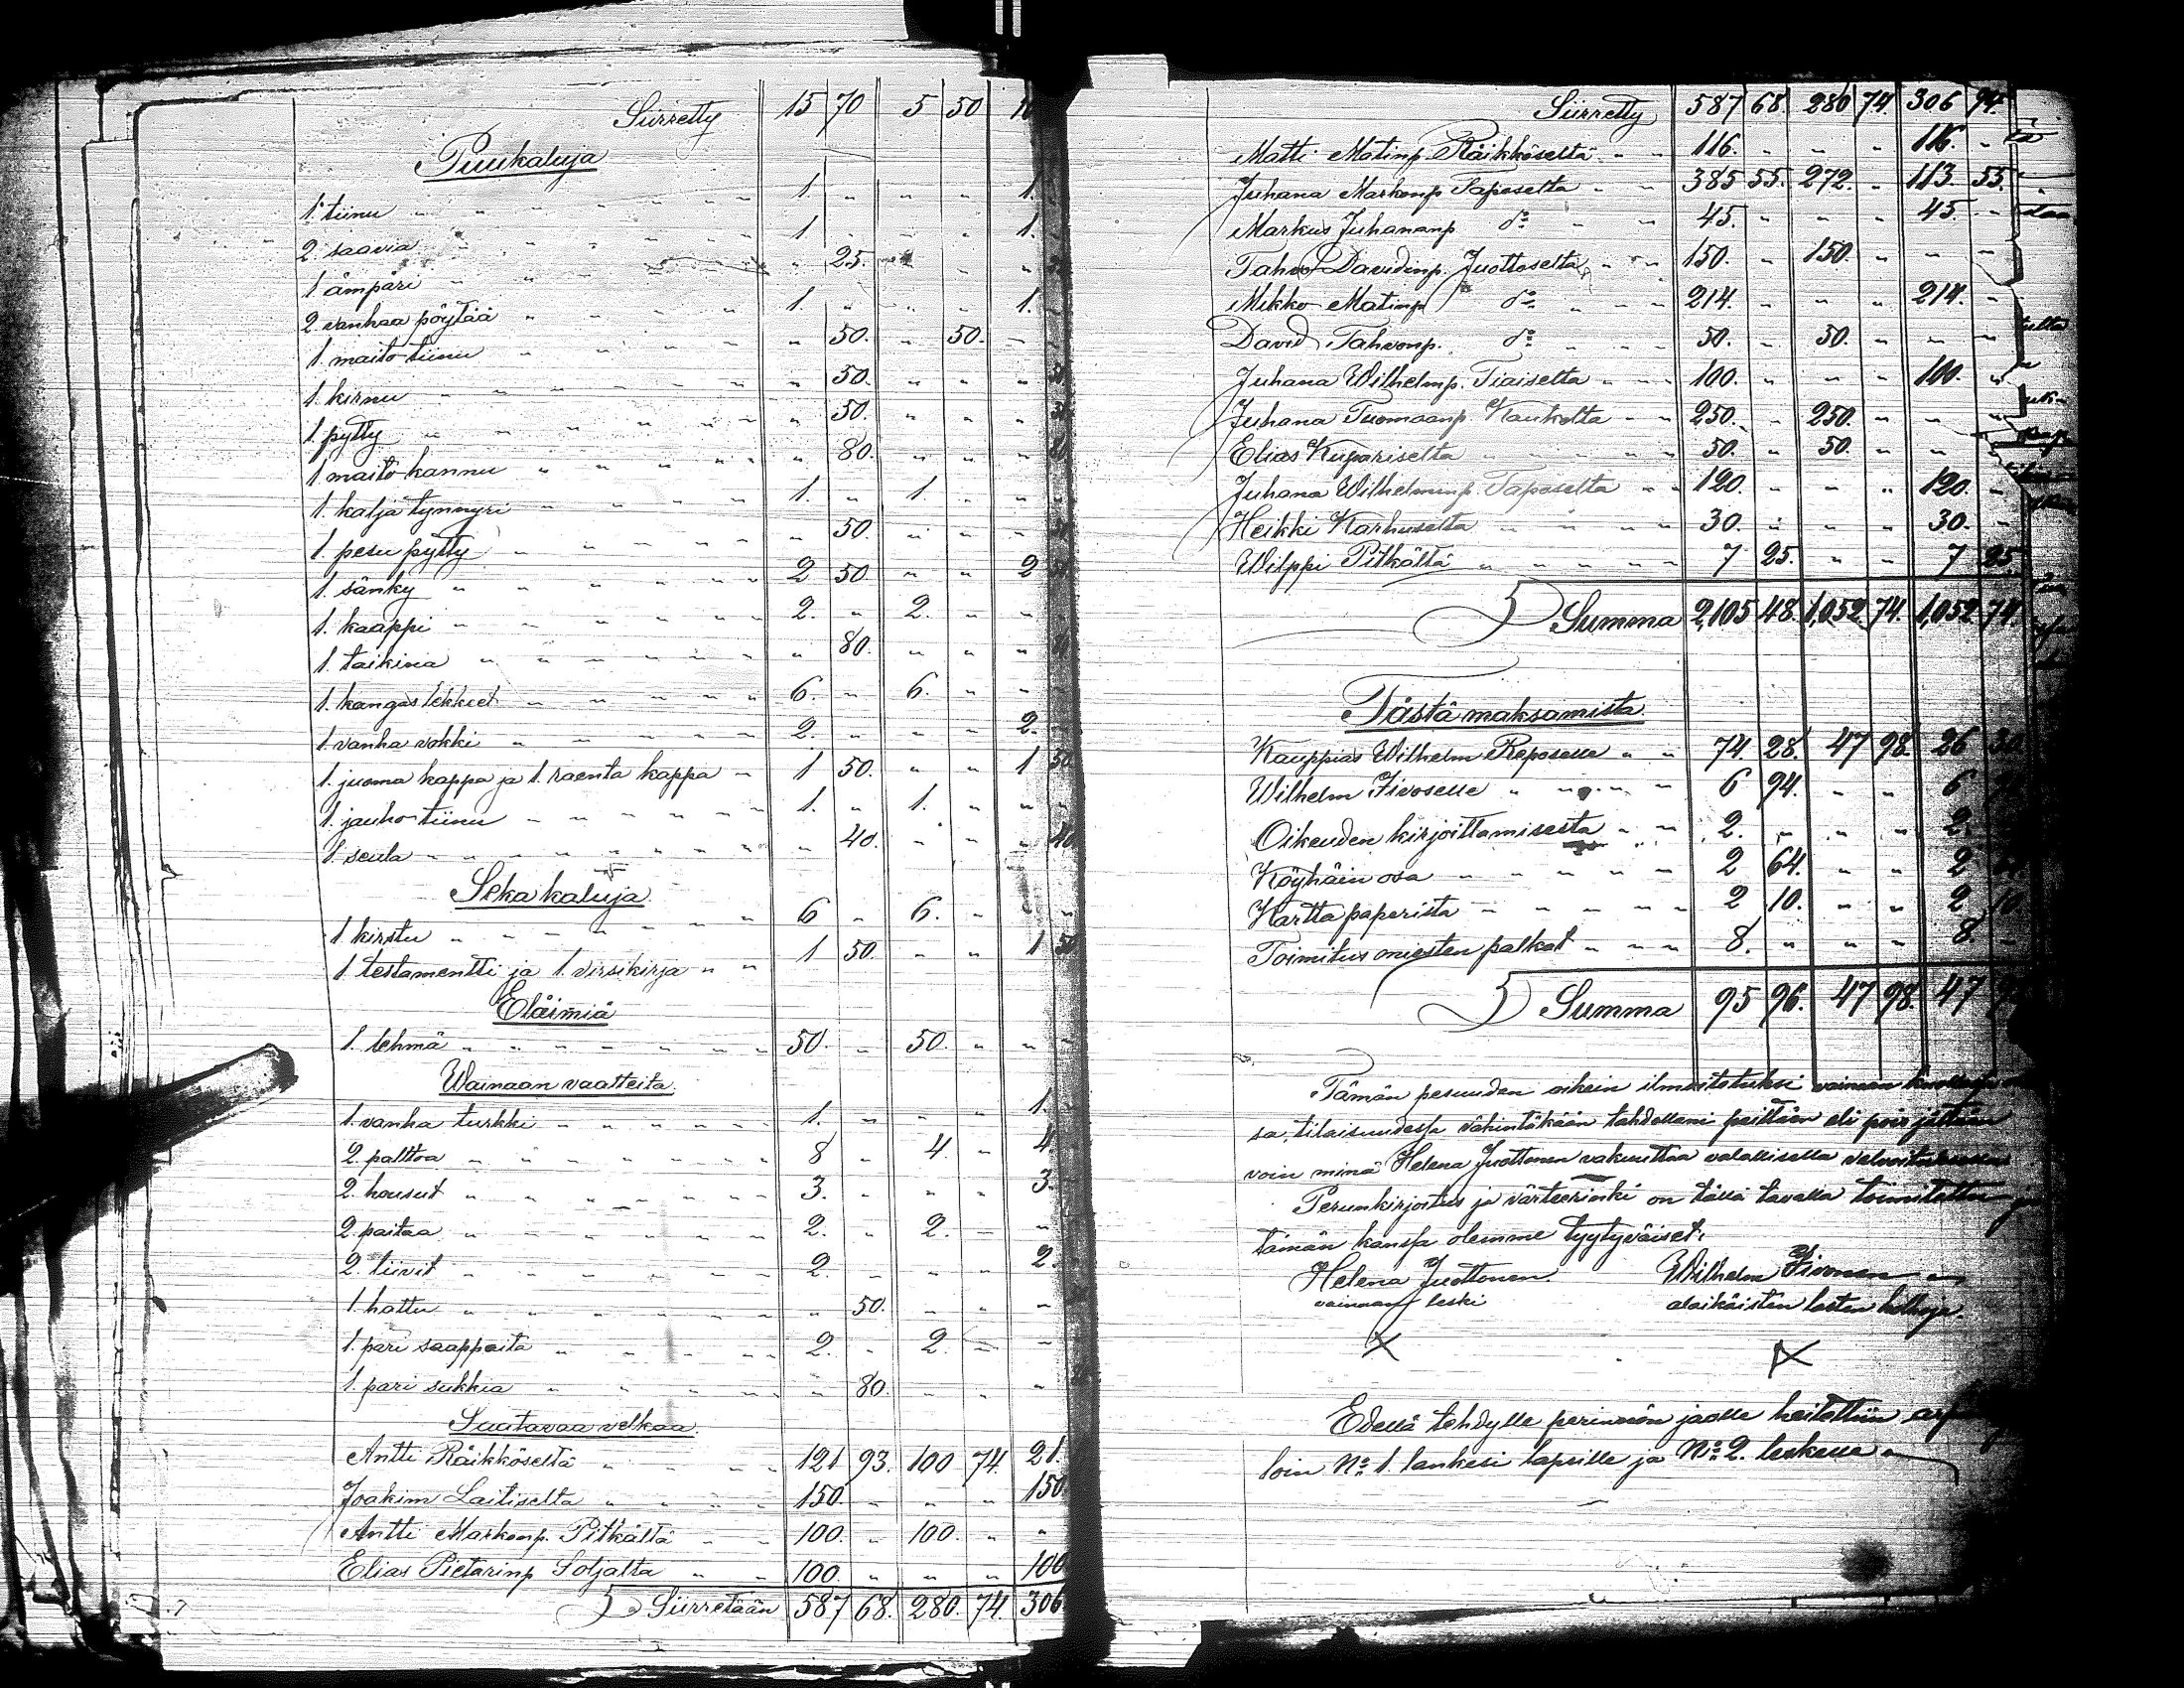 Siirretty 15 70 5 50 10
Puukaluja
1. tiinu " " 1. " " " 1.
2. saavia " " 1 " " " 1.
1 ämpäri " " " 25. " " "
2 vanhaa pöytää " " 1. " " " 1.
1. maito tiinu " " " 50. " 50. "
1. kirnu " " " 50. " " " 50
1. pytty " " " 50. " " " 50
1 maito kannu " " " 80. " " " 80
1. kalja tynnyri " " 1. " 1. " "
1. pesu pytty " " " 50. " " "
1. sänky " " 2 50. " " 2 50
1. kaappi " " 2. " 2. " "
1. taikina " " " 80. " " " 80
1. kangas lekkeet " " 6. " 6. " "
1. vanha vokki " " 2. " " " 2.
1. juoma kappa ja 1. raenta kappa " 1 50. " " 1 50
1. jauho tiinu " " 1. " 1. " "
1. seula " " " 40. " " " 40
Seka kaluja.
1 kirstu " " 6 " 6. " "
1. testamentti ja 1. virsikirja " " 1 50. " " 1 50
Eläimiä
1. lehmä " " 50. " 50. " "
Wainaan vaatteita.
1. vanha turkki " " 1. " " " 1.
2. palttoa " " 8 " 4. " 4
2. housut " " 3. " " " 3.
2. paitaa " " 2. " 2. " "
2. liivit " " 2. " " " 2.
1. hattu " " " 50. " " "
1. pari saappaita " " 2. " 2. " "
1. pari sukkia " " " 80. " " "
Saatavaa velkaa.
Antti Räikköseltä " " 121 93. 100 74. 21.
Joakim Laitiselta " " 150. " " " 150
Antti Markonp. Pitkältä " " 100. " 100. " "
Elias Pietarinp Soljalta " " 100. " " " 100
Siirretään 587 68. 280. 74. 306
Siirretty 587 68. 280 74. 306 94.
Matti Matinp. Räikköseltä " " 116. " " " 116. "
Juhana Markonp Taposelta " " 385 55. 272. " 113. 55.
Markus Juhananp do " " 45. " " " 45. "
Tahvo Davidinp. Juottoselta " " 150. " 150. " " "
Mikko Matinp do " " 214. " " " 214. "
David Tahvonp. do " " 50. " 50. " " "
Juhana Wilhelmp. Tiaiselta " " 100. " " " 100. "
Juhana Tuomaanp Kaukolta " " 250. " 250. " " "
Elias Kupariselta " " 50. " 50. " "
Juhana Wilhelminp. Taposelta " " 120. " " " 120. "
Heikki Karhuselta " " 30. " " " 30. "
Wilppi Pitkältä " " 7 25. " " 7 25
Summa 2,105 48. 1,052. 74. 1,052 74.
Tästä maksamista.
Kauppias Wilhelm Reposelle " " 74. 28. 47 98. 26 30
Wilhelm Sivoselle " " 6 94. " " 6
Oikeuden kirjoittamisesta " " 2. " " " 2.
Köyhäin osa " " 2 64. " " 2
Kartta paperista " " 2 10. " " 2 10
Toimitus miesten palkat " " 8. " " " 8.
Summa 95 96. 47 98. 47
Tämän pesuuden oikein ilmoitetuksi vainaan
sa, tilaisuudessa vähintäkään tahdollani peittään eli pois jättään
voin minä Helena Juottonen vakuuttaa valallisella velvoituksella
Perunkirjoitus ja värteerinki on tällä tavalla toimitettu
tämän kanssa olemme tyytyväiset.
Helena Juottonen Wilhelm Sivonen
vainaan leski alaikäisten lasten holhoja.
X X
Edellä tehdylle perinnön jaolle heitettiin
loin No 1. lankesi lapsille ja No 2. leskelle